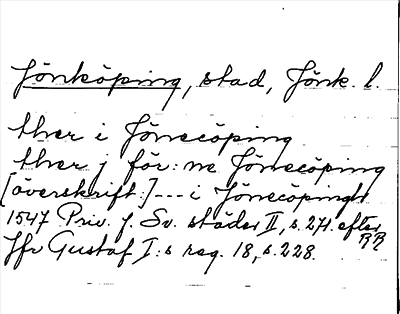 Jönköping, stad, Jönk. l.
ther i Jönecöping
ther j för: ne Jönecöping
[överskrift:] --- i Jönecöpingh
1547 Priv. f. Sv. städer II, s. 271. efter RR
Jfr Gustaf I:s reg. 18, s. 228.